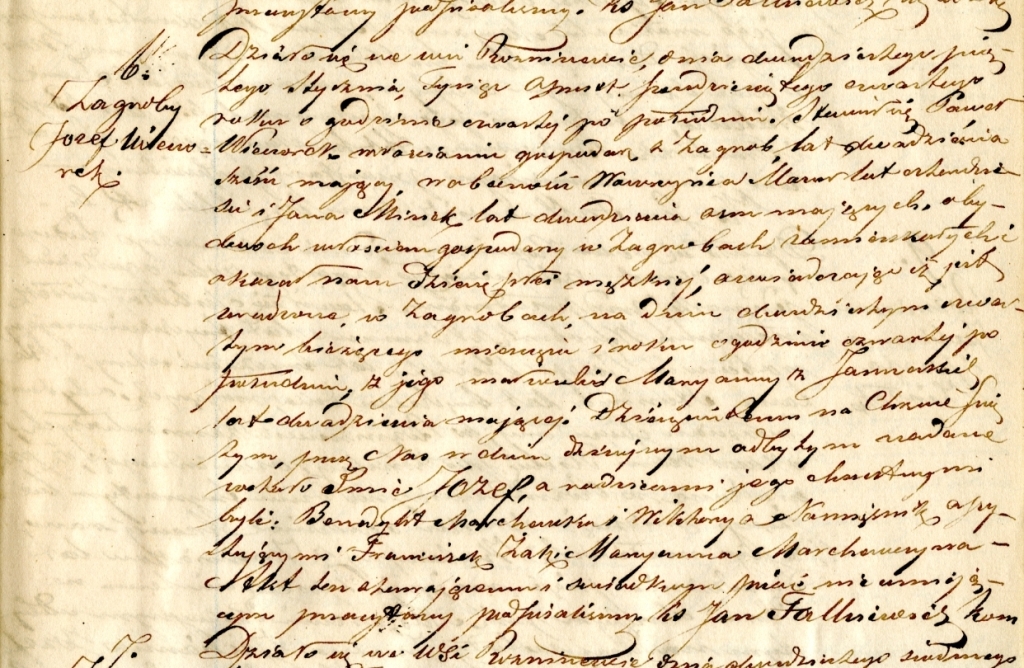 przeczytany podpisaliśmy. Ks Jan
6.
Zagroby
Jozef Wieczo=
rek.
Działo się we wsi Rozniszewie, dnia dwudziestego pią=
tego Stycznia, Tysiąc Ośmset piędziesiątego czwartego
roku o godzinie czwartej po południu. Stawił się Paweł
Wieczorek włościanin gospodarz z Zagrob, lat dwadzieścia
sześć mający, w obecności Wawrzyńca lat czterdzie=
ści i Jana lat dwadzieścia ośm mających, oby=
dwóch włościan gospodarzy w Zagrobach zamieszkałych i
okazał nam Dziecię płci męzkiej, oświadczając iż jest
urodzone, w Zagrobach, na dniu dwudziestym czwar=
tym bieżącego miesiąca i roku o godzinie czwartej po
południu, z jego małżonki Maryanny z
lat dwadzieścia mającej. Dziecięciu temu na Chrzcie Świę
tym, przez Nas w dniu dzisiejszym odbytym nadane
zostało Imie Jozef, a rodzicami jego chrzestnymi
byli: Benedykt i Wiktorya asy=
stującymi Franciszek Maryanna
Akt ten stawającemu i świadkom pisać nie umieją=
cym przeczytany podpisaliśmy Ks Jan
7.
Działo się we Wsi Rozniszewie dnia dwudziestego siódmego